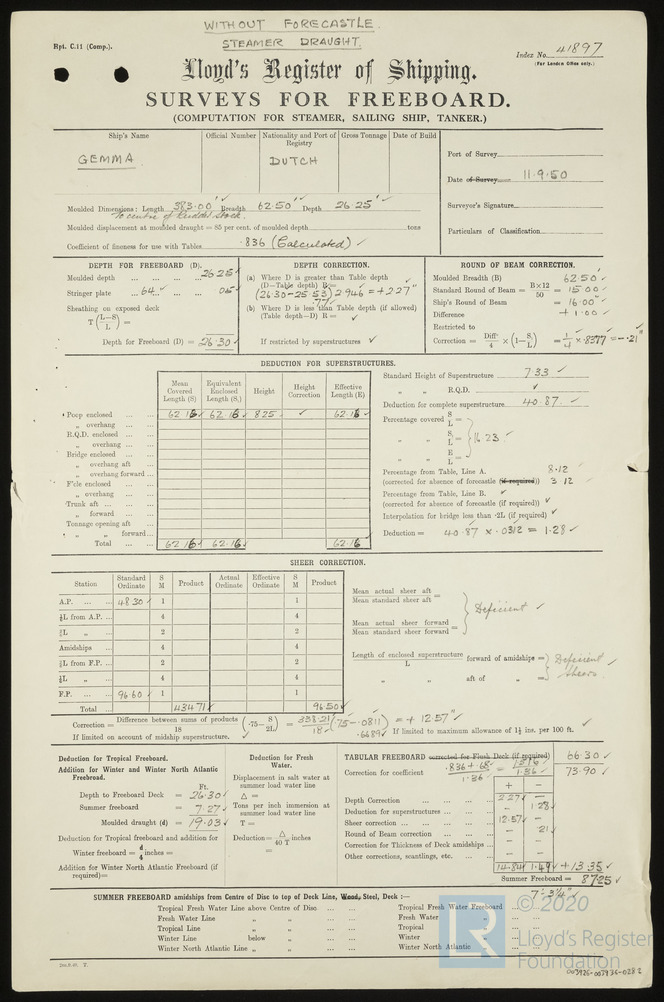 WITHOUT FORECASTLE.
STEAMER DRAUGHT.
Rpt. C.11 (Comp.).
Index No. 41897
(For London Office only.)
Lloyd's Register of Shipping.
SURVEYS FOR FREEBOARD.
(COMPUTATION FOR STEAMER, SAILING SHIP, TANKER.)
Ship's Name Official Number Nationality and Port of Registry Gross Tonnage Date of Build
GEMMA DUTCH
Port of Survey
Date of Survey 11.9.50
Surveyor's Signature
Particulars of Classification
Moulded Dimensions: Length 383.00' Breadth 62.50' Depth 26.25'
to centre of Rudder Stock.
Moulded displacement at moulded draught = 85 per cent. of moulded depth tons
Coefficient of fineness for use with Tables .836 (Calculated)
DEPTH FOR FREEBOARD (D).
Moulded depth ... 26.25
Stringer plate .64 ... 05
Sheathing on exposed deck
T (L-S/L) =
Depth for Freeboard (D) = 26.30
DEPTH CORRECTION.
(a) Where D is greater than Table depth
(D—Table depth) R=
(26.30-25.53) 2.946 = +2.27"
.77
(b) Where D is less than Table depth (if allowed)
(Table depth—D) R =
If restricted by superstructures
ROUND OF BEAM CORRECTION.
Moulded Breadth (B) 62.50'
Standard Round of Beam = B×12/50 = 15.00
Ship's Round of Beam = 16.00"
Difference + 1.00
Restricted to
Correction = Diff/4 × (1-S/L) = 1/4 × .8377 = -.21"
DEDUCTION FOR SUPERSTRUCTURES.
Mean Covered Length (S) Equivalent Enclosed Length (S₁) Height Height Correction Effective Length (E)
Poop enclosed 62.16 62.16 8.25 62.16
„ overhang
R.Q.D. enclosed
„ overhang
Bridge enclosed
„ overhang aft
„ overhang forward
F'cle enclosed
„ overhang
Trunk aft
„ forward
Tonnage opening aft
„ „ forward
Total 62.16 62.16 62.16
Standard Height of Superstructure 7.33
„ „ R.Q.D.
Deduction for complete superstructure 40.87.
Percentage covered S/L =
„ „ S₁/L = 16.23
„ „ E/L =
Percentage from Table, Line A. 8.12
(corrected for absence of forecastle (if required)) 3.12
Percentage from Table, Line B.
(corrected for absence of forecastle (if required))
Interpolation for bridge less than ·2L (if required)
Deduction = 40.87 × .0312 = 1.28
SHEER CORRECTION.
Station Standard Ordinate S M Product Actual Ordinate Effective Ordinate S M Product
A.P. 48.30 1 1
⅙L from A.P. 4 4
⅓L „ 2 2
Amidships 4 4
⅓L from F.P. 2 2
⅙L „ 4 4
F.P. 96.60 1 1
Total 434.71 96.50
Mean actual sheer aft
Mean standard sheer aft =
Mean actual sheer forward
Mean standard sheer forward =
Deficient
Length of enclosed superstructure / L forward of amidships =
„ „ aft of „ =
Deficient sheers.
Correction = Difference between sums of products / 18 (·75- S/2L) = 338.21/18 (.75-.0811) = + 12.57"
.6689
If limited on account of midship superstructure.
If limited to maximum allowance of 1½ ins. per 100 ft.
Deduction for Tropical Freeboard.
Addition for Winter and Winter North Atlantic Freeboard.
Ft.
Depth to Freeboard Deck = 26.30
Summer freeboard = 7.27
Moulded draught (d) = 19.03
Deduction for Tropical freeboard and addition for
Winter freeboard = d/4 inches =
Addition for Winter North Atlantic Freeboard (if required)=
Deduction for Fresh Water.
Displacement in salt water at summer load water line
Δ =
Tons per inch immersion at summer load water line
T =
Deduction = Δ/40 T inches
=
TABULAR FREEBOARD corrected for Flush Deck (if required) 66.30
Correction for coefficient .836 + .68/1.36 = 1.516/1.36 73.90
+ —
Depth Correction 2.27 —
Deduction for superstructures — 1.28
Sheer correction 12.57 —
Round of Beam correction — .21
Correction for Thickness of Deck amidships — —
Other corrections, scantlings, etc. — —
14.84 1.49 +13.35
Summer Freeboard = 87.25
SUMMER FREEBOARD amidships from Centre of Disc to top of Deck Line, Wood, Steel, Deck :— 7'-3¼"
Tropical Fresh Water Line above Centre of Disc
Fresh Water Line „ „
Tropical Line „ „
Winter Line below „
Winter North Atlantic Line „ „
Tropical Fresh Water Freeboard
Fresh Water „
Tropical „
Winter „
Winter North Atlantic „
LR
© 2020
Lloyd's Register
Foundation
003926-003936-0282